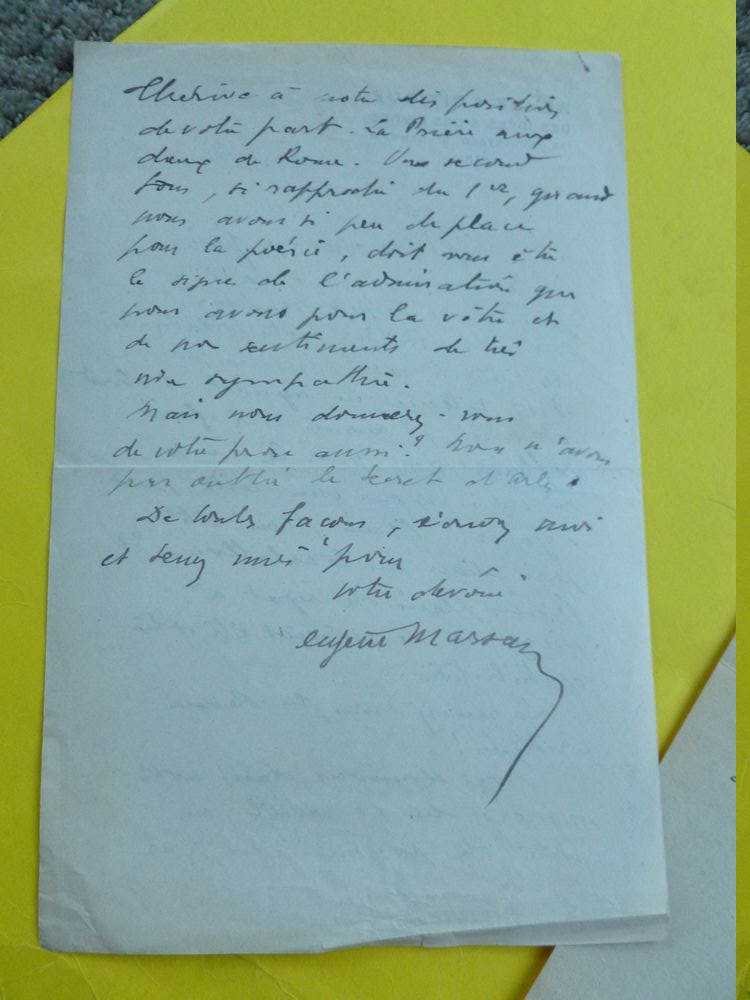 Thérive à notre disposition
de votre part. La Prière aux
dieux de Rome. Un second
, si rapproché du 1er, quand
nous avons si peu de place
pour la poésie, doit vous être
le signe de l'admiration que
nous avons pour la vôtre et
de nos sentiments de très
vive sympathie.
Mais nous donnerez-vous
de votre prose aussi ? Nous n'avons
pas oublié le Secret d'Arles.
De toutes façons,
et tenez moi pour
votre dévoué
Eugène Marsan